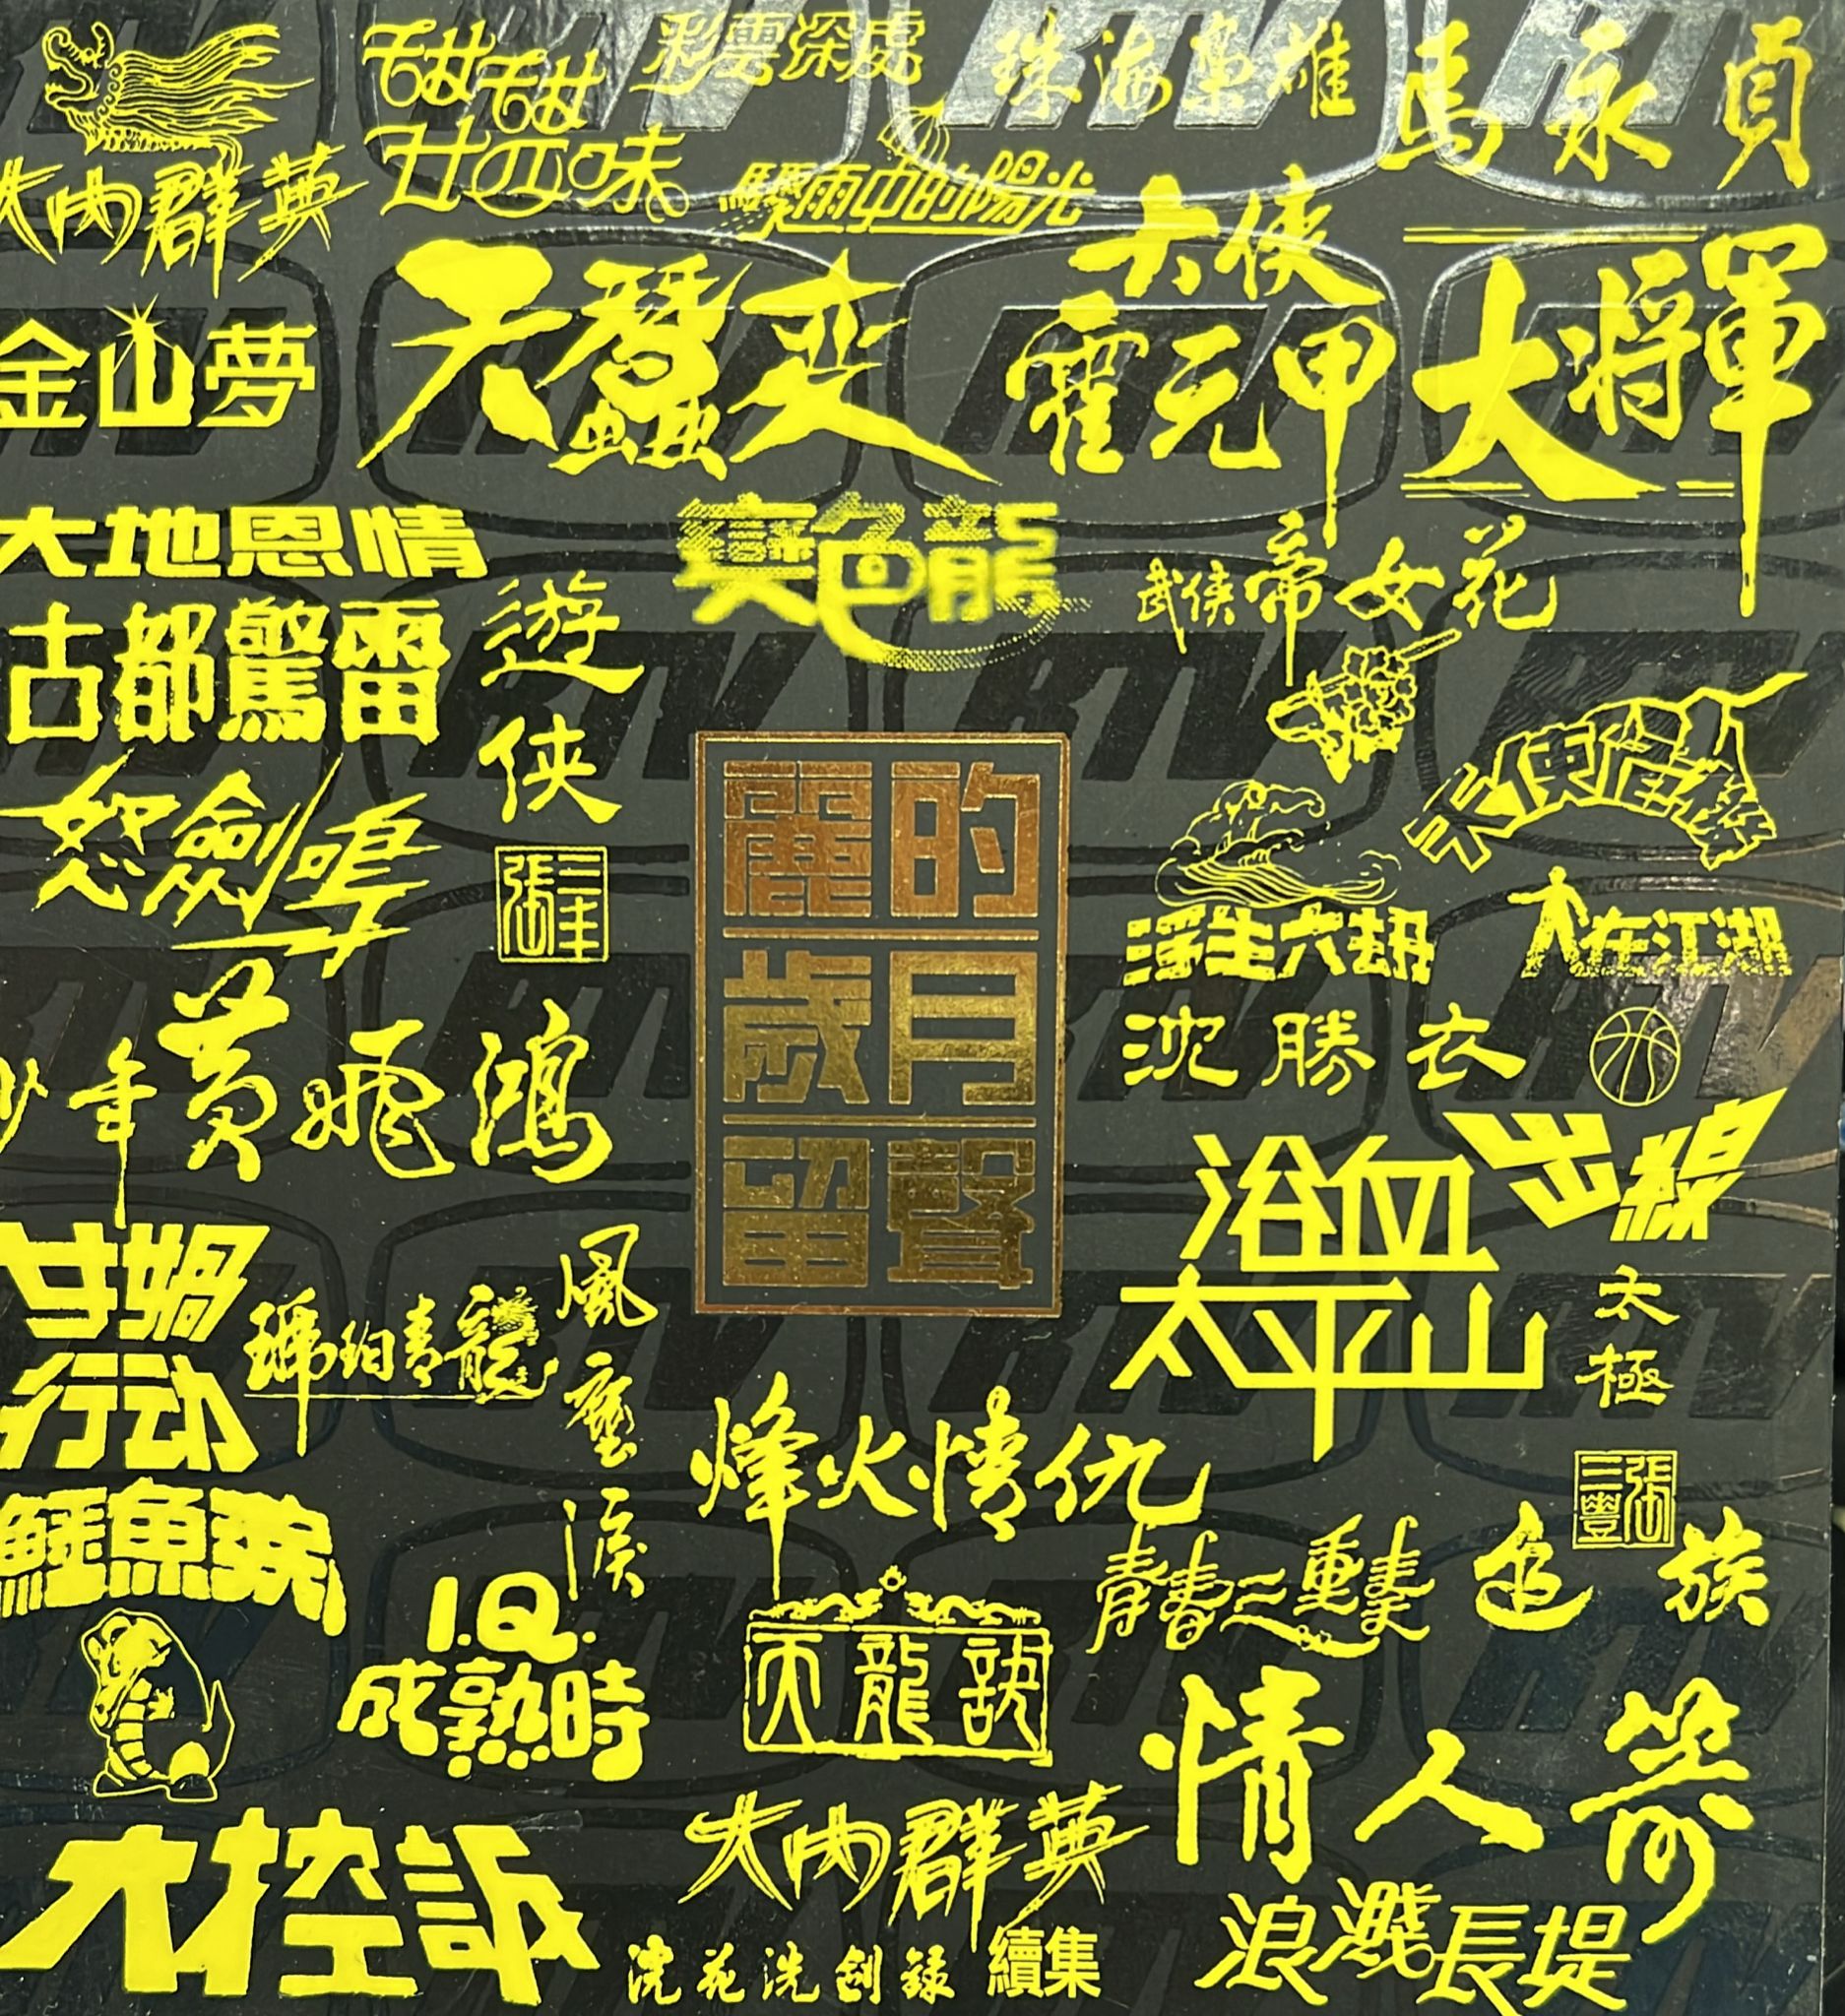 大內群英
甜甜
廿四味
彩雲深處
珠海梟雄
馬永貞
驟雨中的陽光
大俠
霍元甲
大將軍
金山夢
天蠶变
大地恩情
變色龍
武俠帝女花
古都驚雷
遊俠
張三丰
怒劍鳴
麗的
歲月
留聲
浮生六劫
人在江湖
沈勝衣
少年黃飛鴻
出線
浴血
太平山
女媧
行动
琥珀青龍
風塵淚
太極
張三豐
烽火情仇
鱷魚淚
青春三重奏
追族
I.Q.
成熟時
天龍訣
情人
大控訴
大內群英
續集
浣花洗劍錄
浪濺長堤
RTV